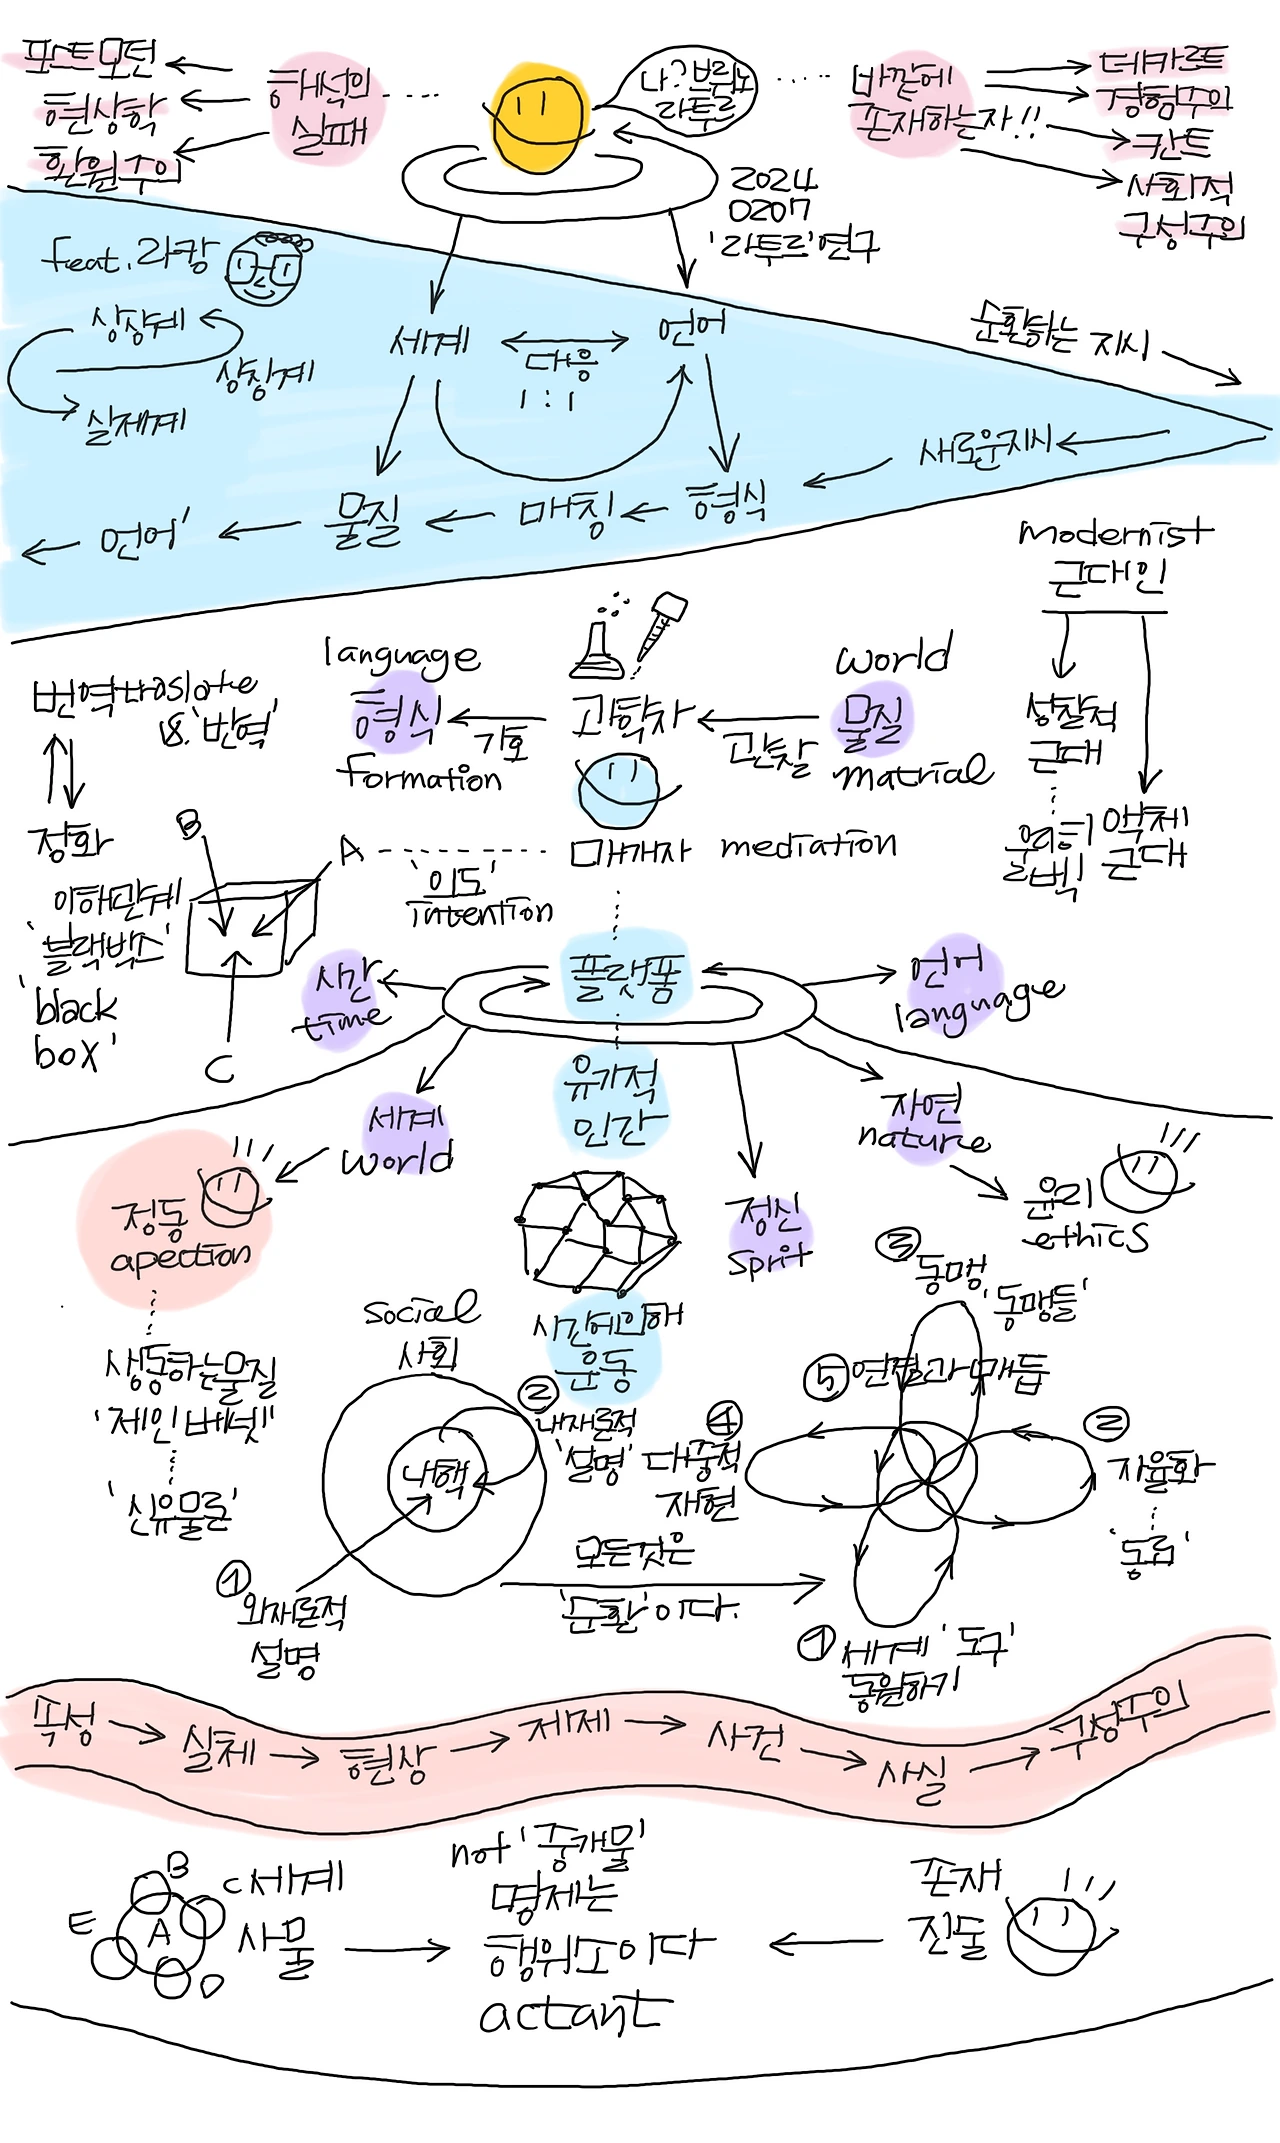 포스트모던
현상학
환원주의
해석의
실패
나? 브뤼노
라투르
바깥에
존재하는자!!
데카르트
경험주의
칸트
사회적
구성주의
2024
0207
'라투르'연구
feat. 라캉
상상계
상징계
실재계
세계
대응
1 : 1
언어
순환하는 지시
새로운지시
형식
매칭
물질
언어'
modernist
근대인
성찰적
근대
울리히
벡
액체
근대
language
형식
formation
기호
과학자
관찰
world
물질
matrial
번역traslate
V8. '번역'
정화
이해관계
'블랙박스'
'black
box'
B
A
C
'의도'
intention
매개자 mediation
플랫폼
시간
time
언어
language
유기적
인간
세계
world
자연
nature
정신
sprit
윤리
ethics
정동
apection
생동하는물질
'제인 베넷'
'신유물론'
social
사회
시간에의해
운동
나핵
① 외재론적
설명
② 내재론적
'설명'
모든것은
'순환'이다.
③ 동맹
'동맹들'
⑤ 연결과 매듭
④ 대중적
재현
② 자율화
'동료'
① 세계 '도구'
동원하기
속성
실체
현상
제제
사건
사실
구성주의
B
C
E
A
D
세계
사물
not '중개물'
명제는
행위소이다
actant
존재
진술